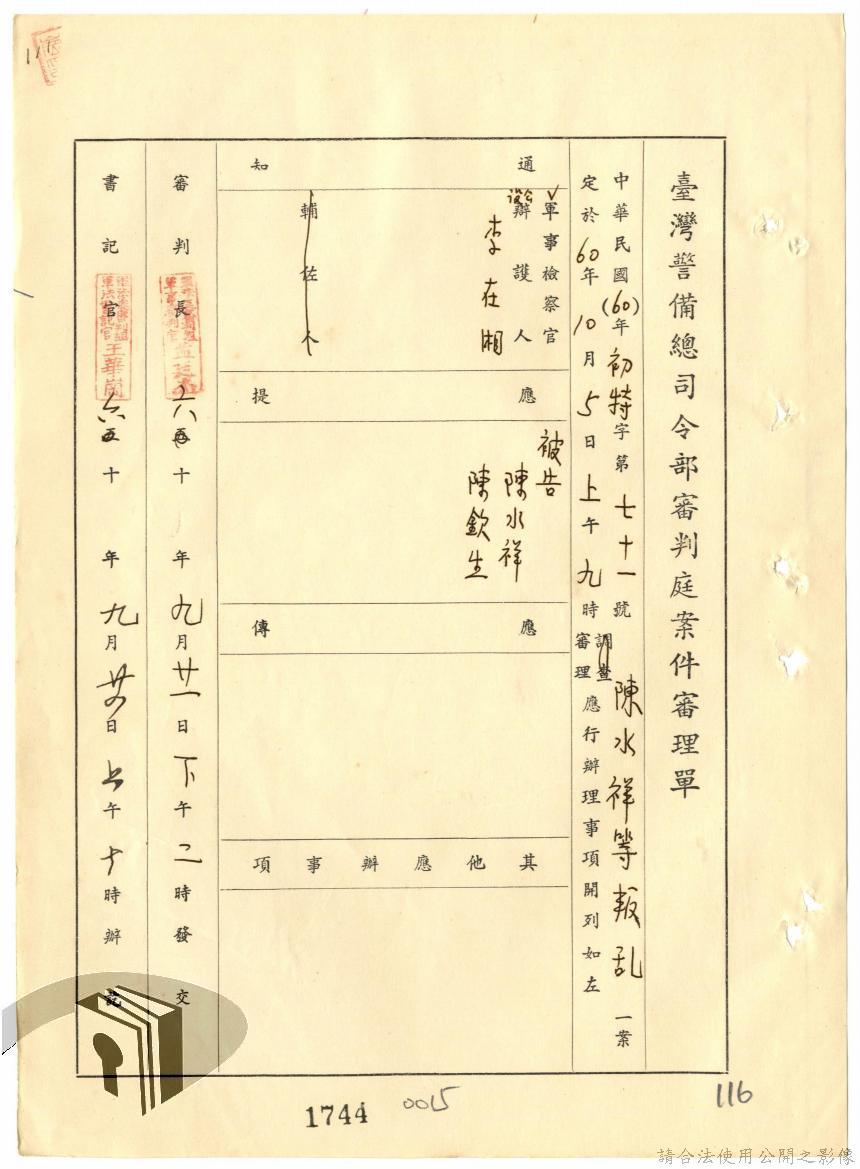 臺灣警備總司令部審判庭案件審理單
中華民國(60)年初特字第七十一號陳水祥等叛乱一案
定於60年10月5日上午九時調查審理應行辦理事項開列如左
通知
軍事檢察官
公設辯護人
李在湘
輔佐人
應提
被告
陳水祥
陳欽生
應傳
其他應辦事項
審判長 六十年九月廿一日下午二時發交
書記官 王華崗 六十年九月廿四日上午十時辦訖
1744
0015
116
請合法使用公開之影像